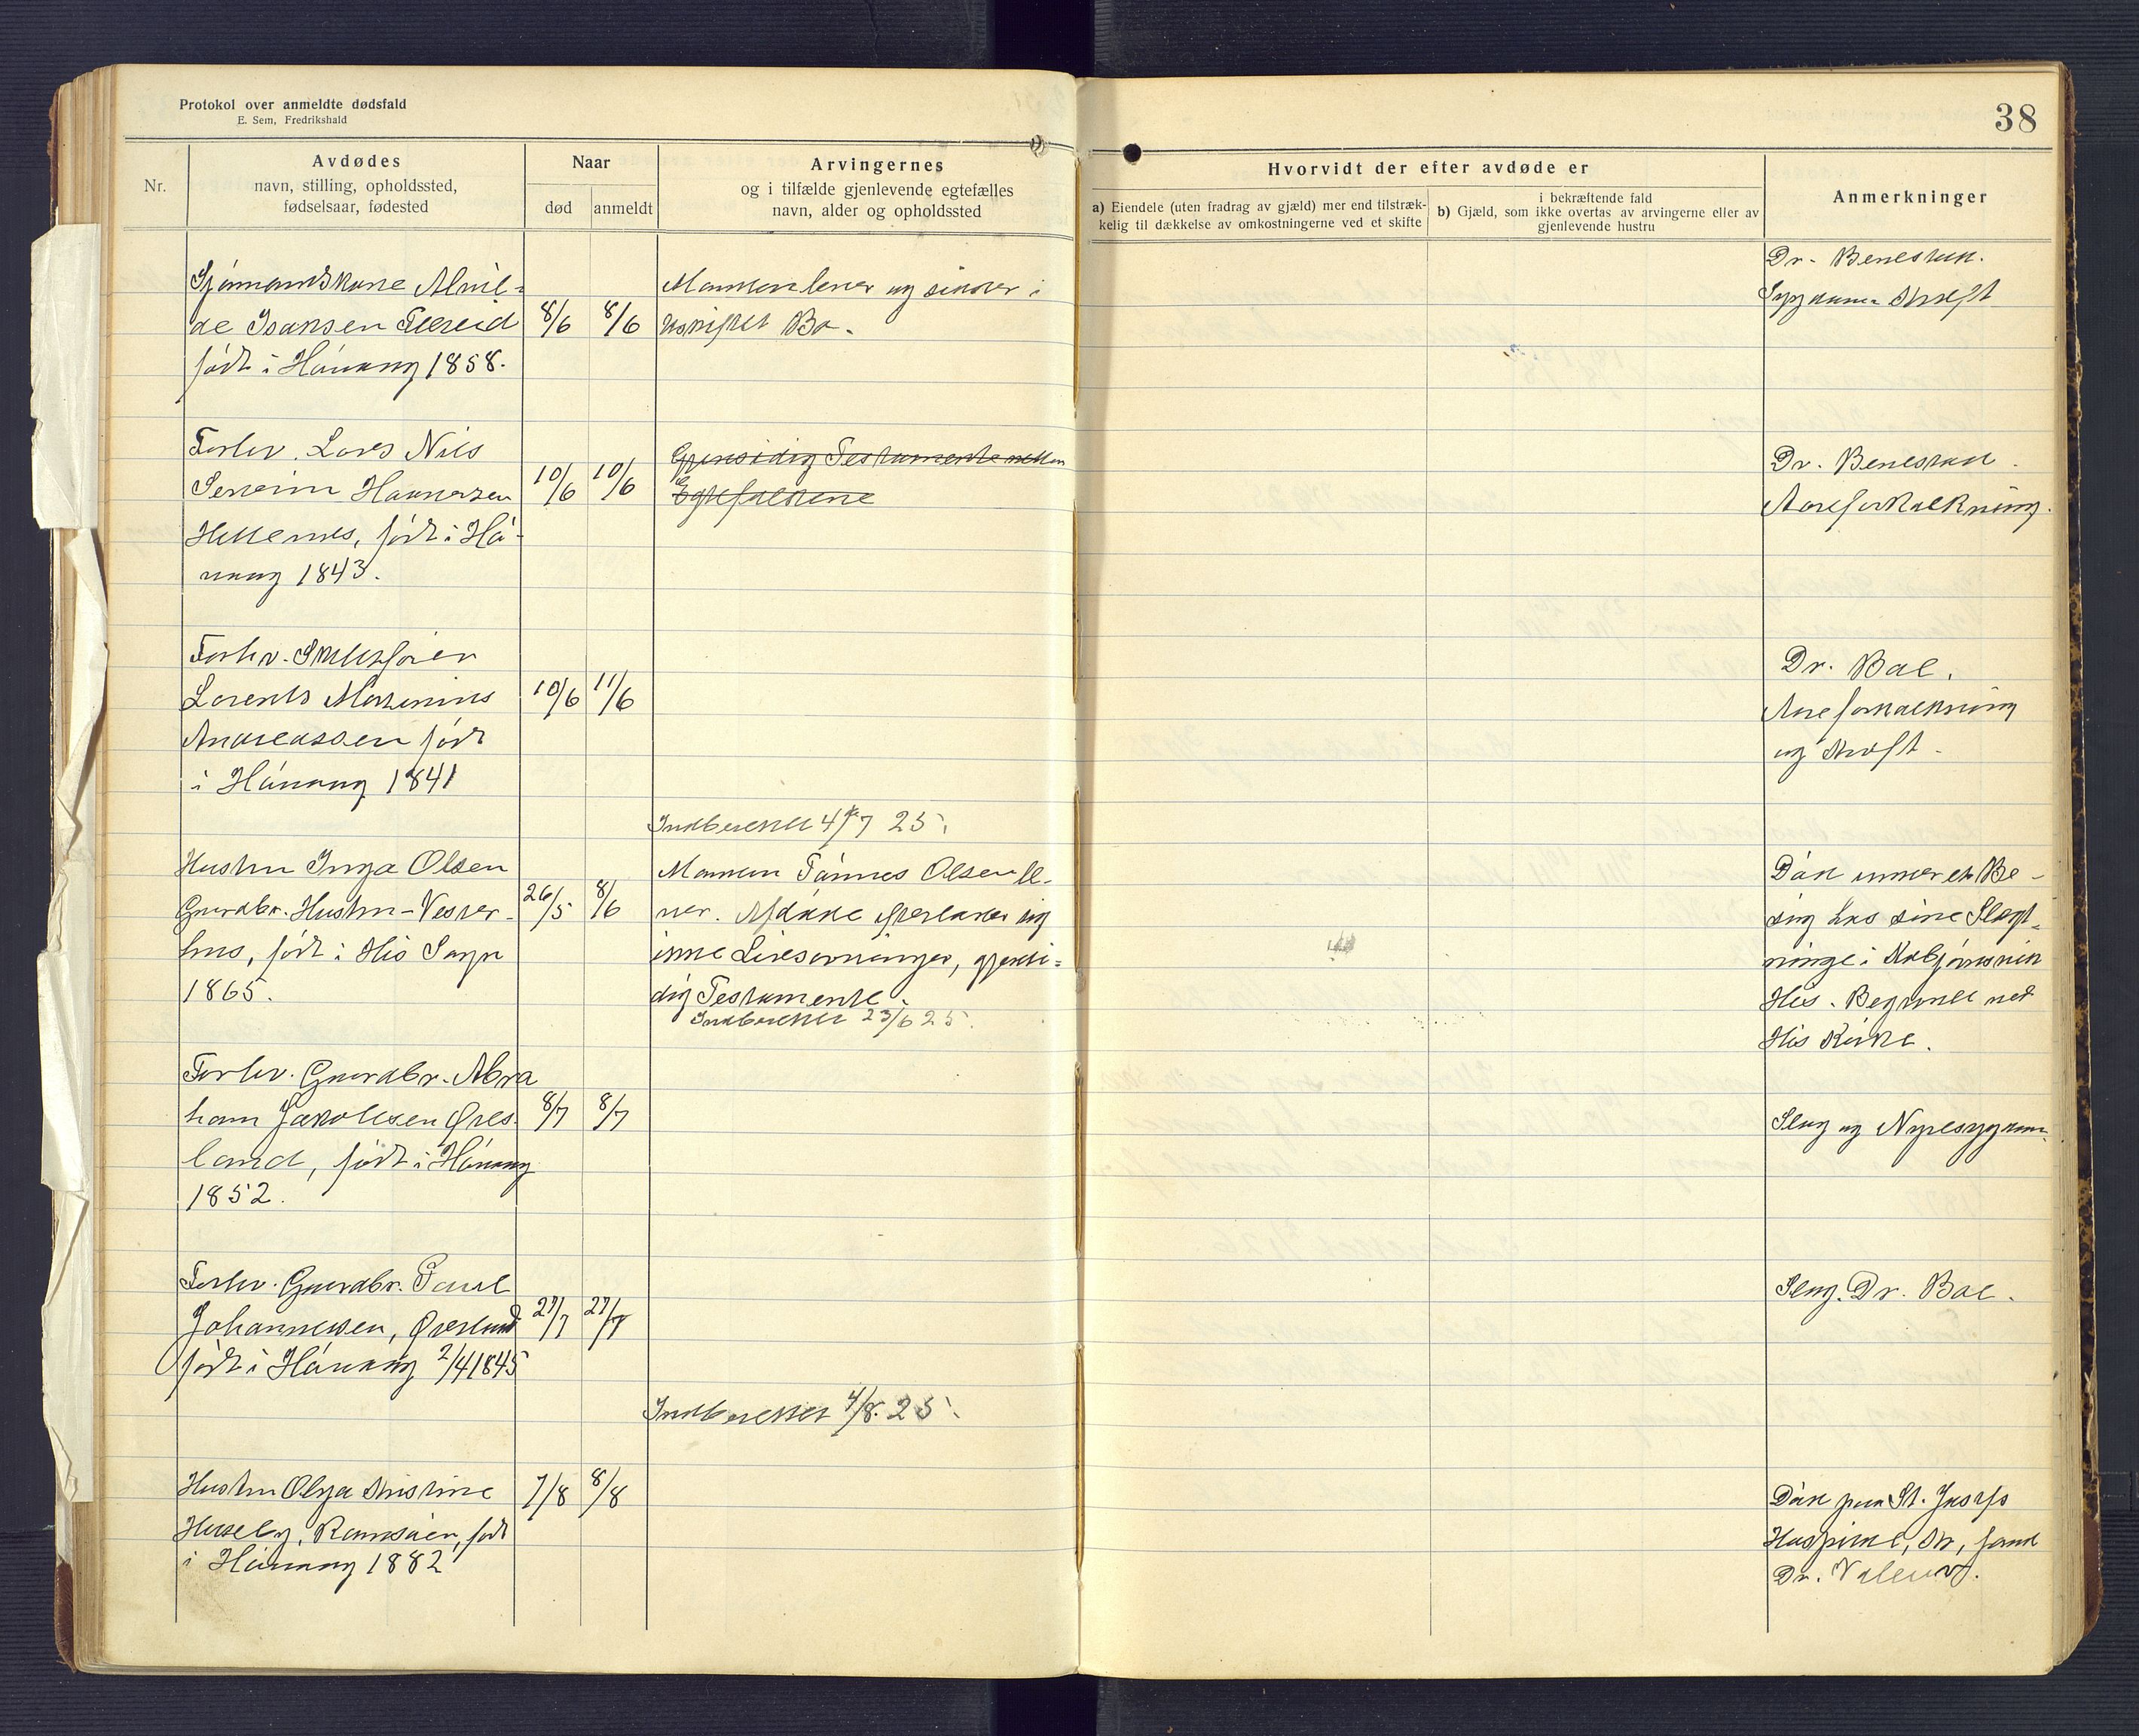 Protokol over anmeldte dødsfald
E. Sem, Fredrikshald
38
Nr.
Avdødes
navn, stilling, opholdssted,
fødselsaar, fødested
Naar
død
anmeldt
Arvingernes
og i tilfælde gjenlevende egtefælles
navn, alder og opholdssted
Hvorvidt der efter avdøde er
a) Eiendele (uten fradrag av gjæld) mer end tilstræk-
kelig til dækkelse av omkostningerne ved et skifte
i bekræftende fald
b) Gjæld, som ikke overtas av arvingerne eller av
gjenlevende hustru
Anmerkninger
Sjømandskone Alvil-
de Isaksen
født i Hövaag 1858.
8/6
8/6
Manden lever og sidder i
uskiftet Bo.
Dr. Benestad.
Sygdom Kræft
Forhv. Lods Nils
Severin
født i Hö-
vaag 1843.
10/6
10/6
Gjensidig Testamente mellem
Egtefolkene
Dr. Benestad.
Aareforkalkning.
Forhv. Skibsfører
Lorents
Andreassen født
i Hövaag 1841
10/6
11/6
Dr. Boe.
Aareforkalkning
og Kræft.
Indberettet 4/7 25.
Hustru Inga Olsen
Gaardbr. Hustru - Vester-
hus, født i His Sogn
1865.
26/5
8/6
Manden Tönnes Olsen le-
ver. Afdöde efterlader sig
ikke Livsarvinger, gjensi-
dig Testamente.
Indberettet 23/6 25.
Död under et Be-
sög hos sine Slegt-
ninge i
His. Begravet ved
His Kirke.
Forhv. Gaardbr. Abra
ham Jakobsen Øves-
land, født i Hövaag
1852.
8/7
8/7
Slag og Nyresygdom
Forhv. Gaardbr. Paul
Johannesen, Øvesland
født i Hövaag 2/4 1845
27/7
27/7
Slag. Dr. Boe.
Indberettet 4/8. 25.
Hustru Olga Kristine
Huseby, Ramsöen, født
i Hövaag 1882
7/8
8/8
Död paa St. Josefs
Hospital, Kr, sand
Dr. Valeur.